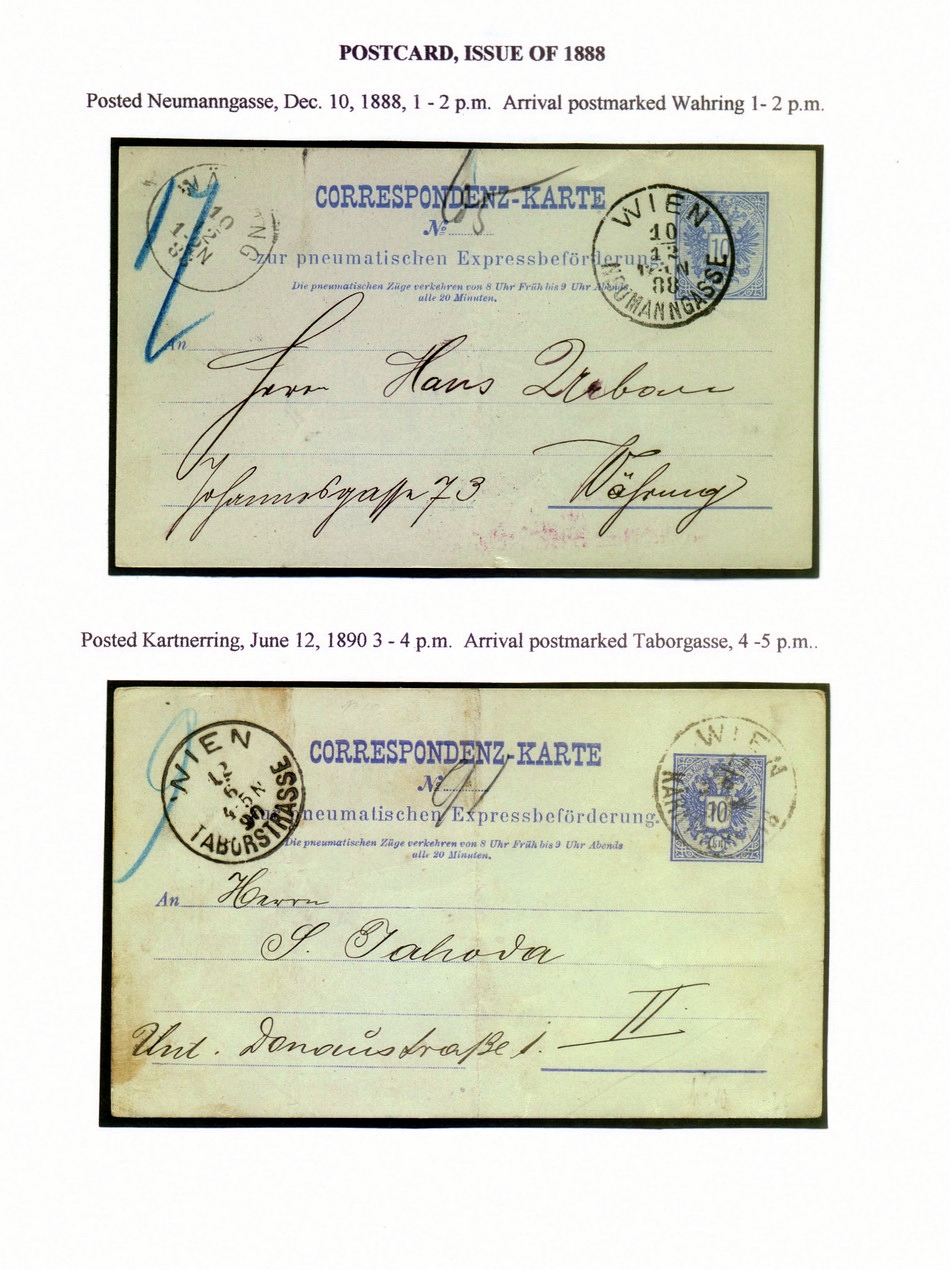 POSTCARD, ISSUE OF 1888
Posted Neumanngasse, Dec. 10, 1888, 1 - 2 p.m. Arrival postmarked Wahring 1- 2 p.m.
CORRESPONDENZ-KARTE
№
zur pneumatischen Expressbeförderung.
Die pneumatischen Züge verkehren von 8 Uhr Früh bis 9 Uhr Abends
alle 20 Minuten.
WÄ NG
10
12
WIEN
10
12
88
NEUMANNGASSE
10
An
Herrn Hans Urban
Johannesgasse 73 Währing
Posted Kartnerring, June 12, 1890 3 - 4 p.m. Arrival postmarked Taborgasse, 4 -5 p.m..
CORRESPONDENZ-KARTE
№ 91
pneumatischen Expressbeförderung.
Die pneumatischen Züge verkehren von 8 Uhr Früh bis 9 Uhr Abends
alle 20 Minuten.
9
WIEN
12
6
4-5N
90
TABORSTRASSE
WIEN
10
An Herrn
S. Jahoda
II
Unt. Donaustraße 1.